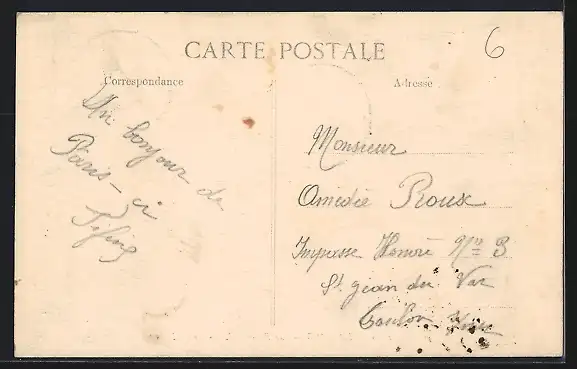 CARTE POSTALE
6
Correspondance
Adresse
Un bonjour de
Paris - ci
Monsieur
Amedée Roux
Impasse Honoré Nº 3
St jean du Var
Toulon Var